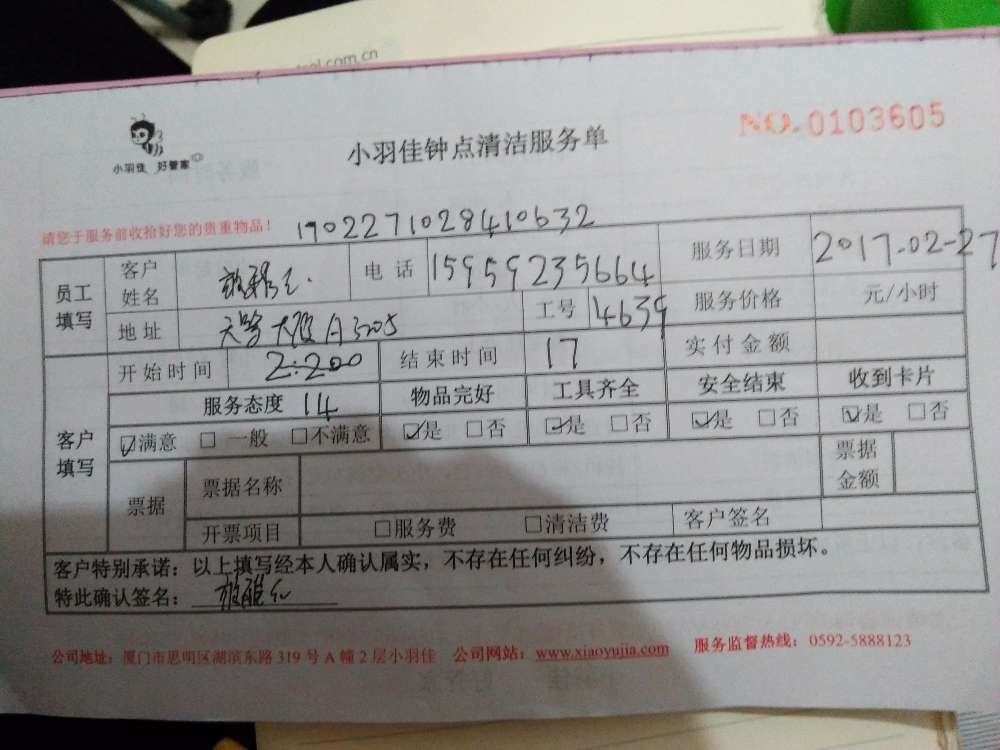 ool.com.cn
小羽佳 好管家
小羽佳钟点清洁服务单
NO.0103605
请您于服务前收拾好您的贵重物品！ 1702271028410632
员工填写 客户姓名 电话 15959235664 服务日期 2017.02-27
地址 大厦A3205 工号 14639 服务价格 元/小时
客户填写 开始时间 2:200 结束时间 17 实付金额
服务态度 14 物品完好 工具齐全 安全结束 收到卡片
☑满意 □一般 □不满意 ☑是 □否 ☑是 □否 ☑是 □否 ☑是 □否
票据 票据名称 票据金额
开票项目 □服务费 □清洁费 客户签名
客户特别承诺：以上填写经本人确认属实，不存在任何纠纷，不存在任何物品损坏。
特此确认签名：
公司地址：厦门市思明区湖滨东路 319 号 A 幢 2 层小羽佳 公司网站：www.xiaoyujia.com 服务监督热线：0592-5888123